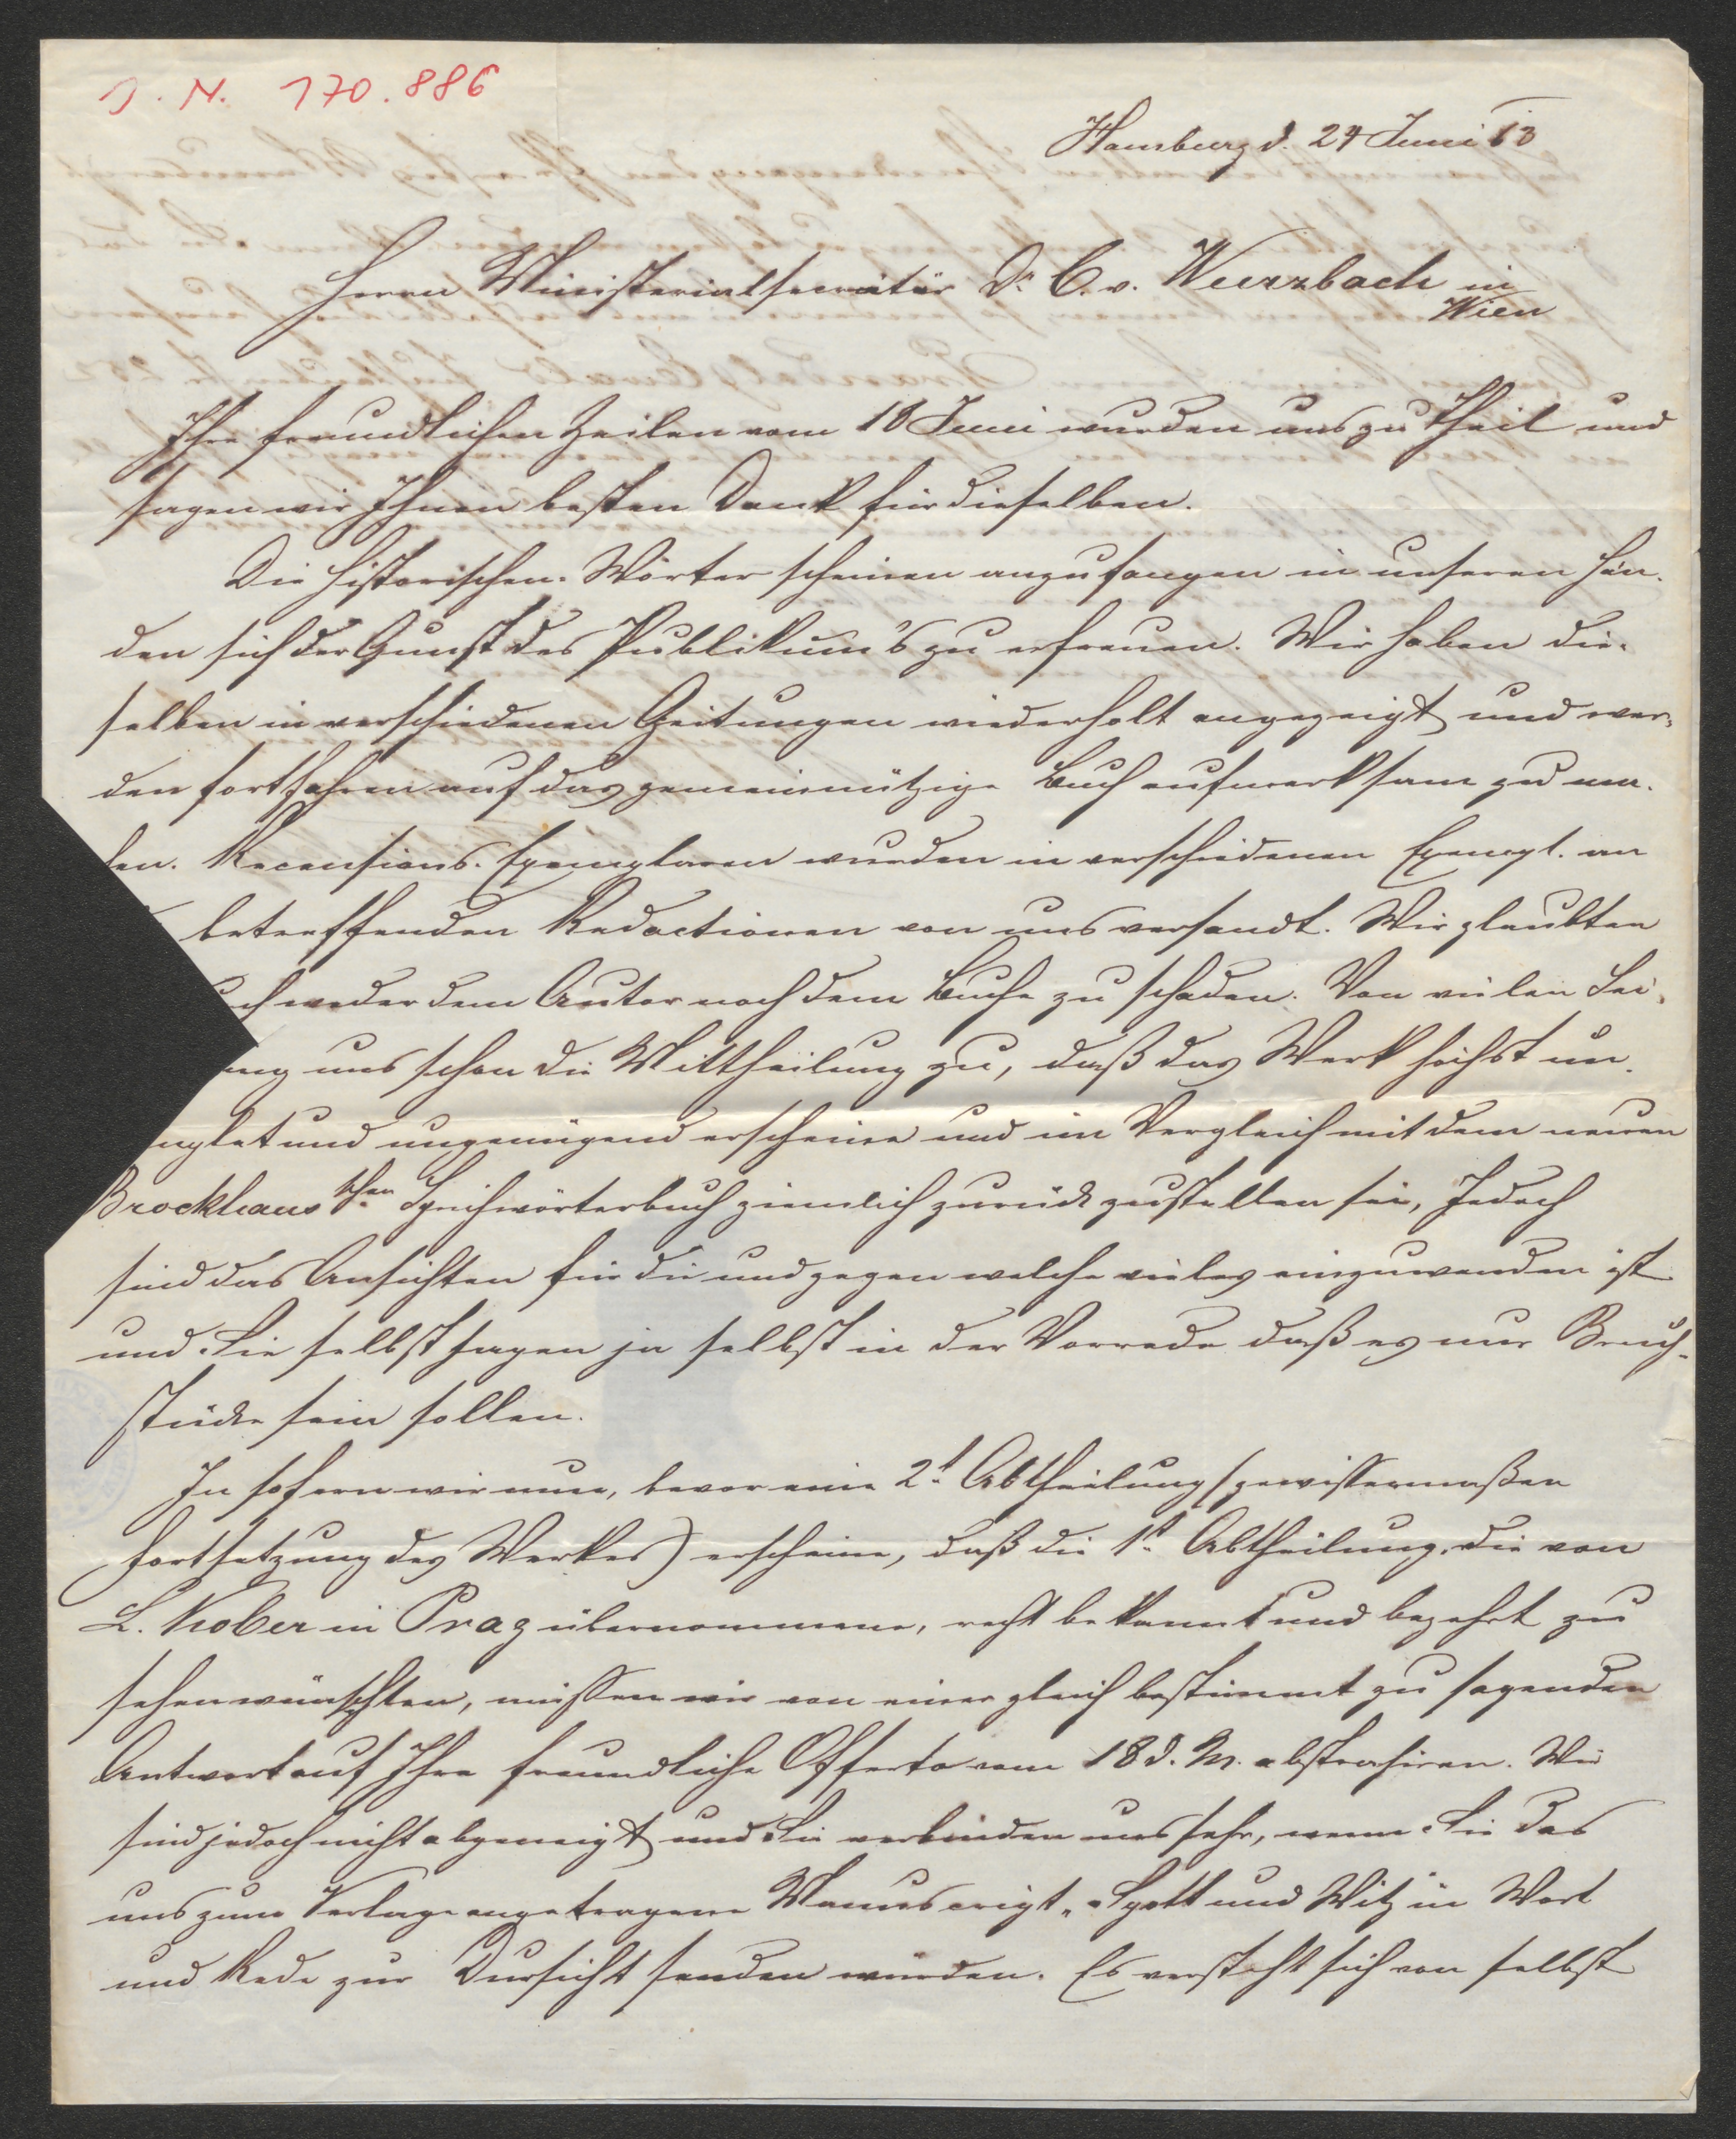 J. N. 170.886
Hamburg d. 24 Juni 63
Herrn Ministerialsecretär Dr C. v. Wurzbach in
Wien
Ihre freundlichen Zeilen vom 18 Juni wurden uns zu Theil und
sagen wir Ihnen besten Dank für dieselben.
Die historischen-Wörter scheinen anzufangen in unseren Hän-
den sich der Gunst des Publikum's zu erfreuen. Wir haben die-
selben in verschiedenen Zeitungen wiederholt angezeigt und wer-
den fortfahren auf das gemeinnützige Buch aufmerksam zu ma-
hen. Recensions-Exemplaren wurden in verschiedenen Exempl. an
betreffenden Redactionen von uns versandt. Wir glaubten
ch weder dem Autor noch dem Buche zu schaden. Von vielen Sei-
ing uns schon die Mittheilung zu, daß das Werk höchst un-
mplet und ungenügend erscheine und im Vergleich mit dem neuen
Brockhaus'schen Sprichwörterbuch ziemlich zurück zustellen sei, Jedoch
sind das Ansichten für die und gegen welche vieles einzuwenden ist
und Sie selbst sagen ja selbst in der Vorrede daß es nur Bruch-
stücke sein sollen.
In sofern wir nun, bevor eine 2t. Abtheilung (gewissermaßen
Fortsetzung des Werkes) erscheine, daß die 1t. Abtheilung, die von
L. Kober in Prag übernommene, recht bekannt und begehrt zu
sehen wünschten, müssen wir von einer gleich bestimmt zu sagenden
Antwort auf Ihre freundliche Offerte vom 18 d. M. abstrahiren. Wir
sind jedoch nicht abgeneigt und Sie verbinden uns sehr, wenn Sie das
uns zum Verlage angetragene Manuscript „Spott und Witz in Wort
und Rede zur Dursicht senden würden. Es versteht sich von selbst